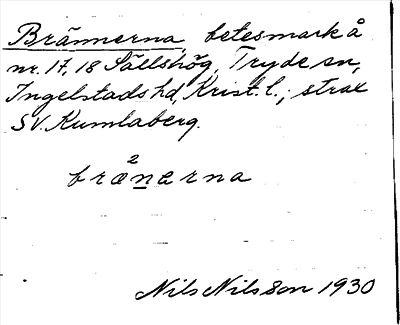 Brännerna, betesmark å
nr. 17, 18 Sällshög, Tryde sn,
Ingelstads hd, Krist. l.; strax
SV. Kumlaberg.
2
brænerna
Nils Nilsson 1930